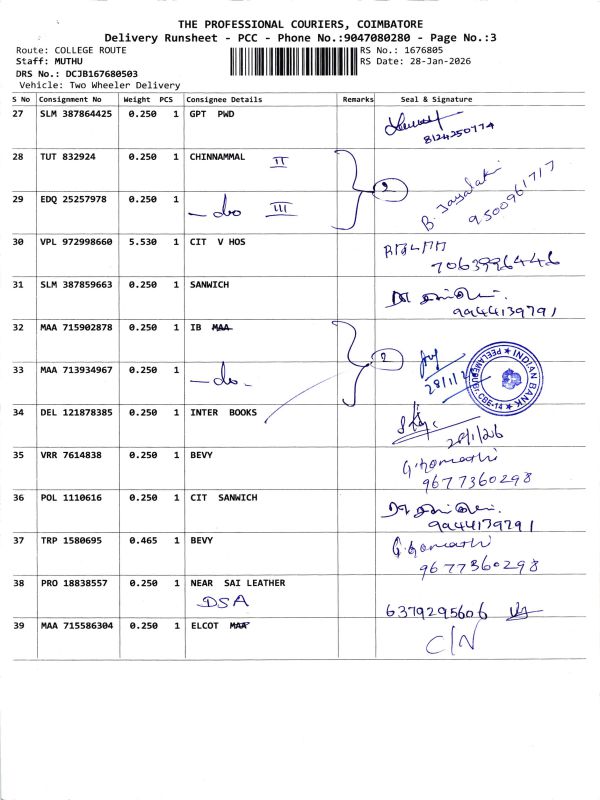 THE PROFESSIONAL COURIERS, COIMBATORE
Delivery Runsheet - PCC - Phone No.:9047080280 - Page No.:3
Route: COLLEGE ROUTE RS No.: 1676805
Staff: MUTHU RS Date: 28-Jan-2026
DRS No.: DCJB167680503
Vehicle: Two Wheeler Delivery
S No Consignment No Weight PCS Consignee Details Remarks Seal & Signature
27 SLM 387864425 0.250 1 GPT PWD
8124250774
28 TUT 832924 0.250 1 CHINNAMMAL II
29 EDQ 25257978 0.250 1 -do III 2 B. Jayalaki 9500961717
30 VPL 972998660 5.530 1 CIT V HOS
7063996446
31 SLM 387859663 0.250 1 SANWICH
9944139791
32 MAA 715902878 1 0.250 IB MAA
33 MAA 713934967 0.250 1 -do- 2 28/1/2 INDIAN BANK PEELAMEDU CBE-14
34 DEL 121878385 0.250 1 INTER BOOKS
28/1/26
35 VRR 7614838 0.250 1 BEVY G. Gomathi
9677360298
36 POL 1110616 0.250 1 CIT SANWICH
9944179791
37 TRP 1580695 0.465 1 BEVY G. Gomathi
9677360298
38 PRO 18838557 0.250 1 NEAR SAI LEATHER
DSA 6379295606
39 MAA 715586304 0.250 1 ELCOT MAA C/N